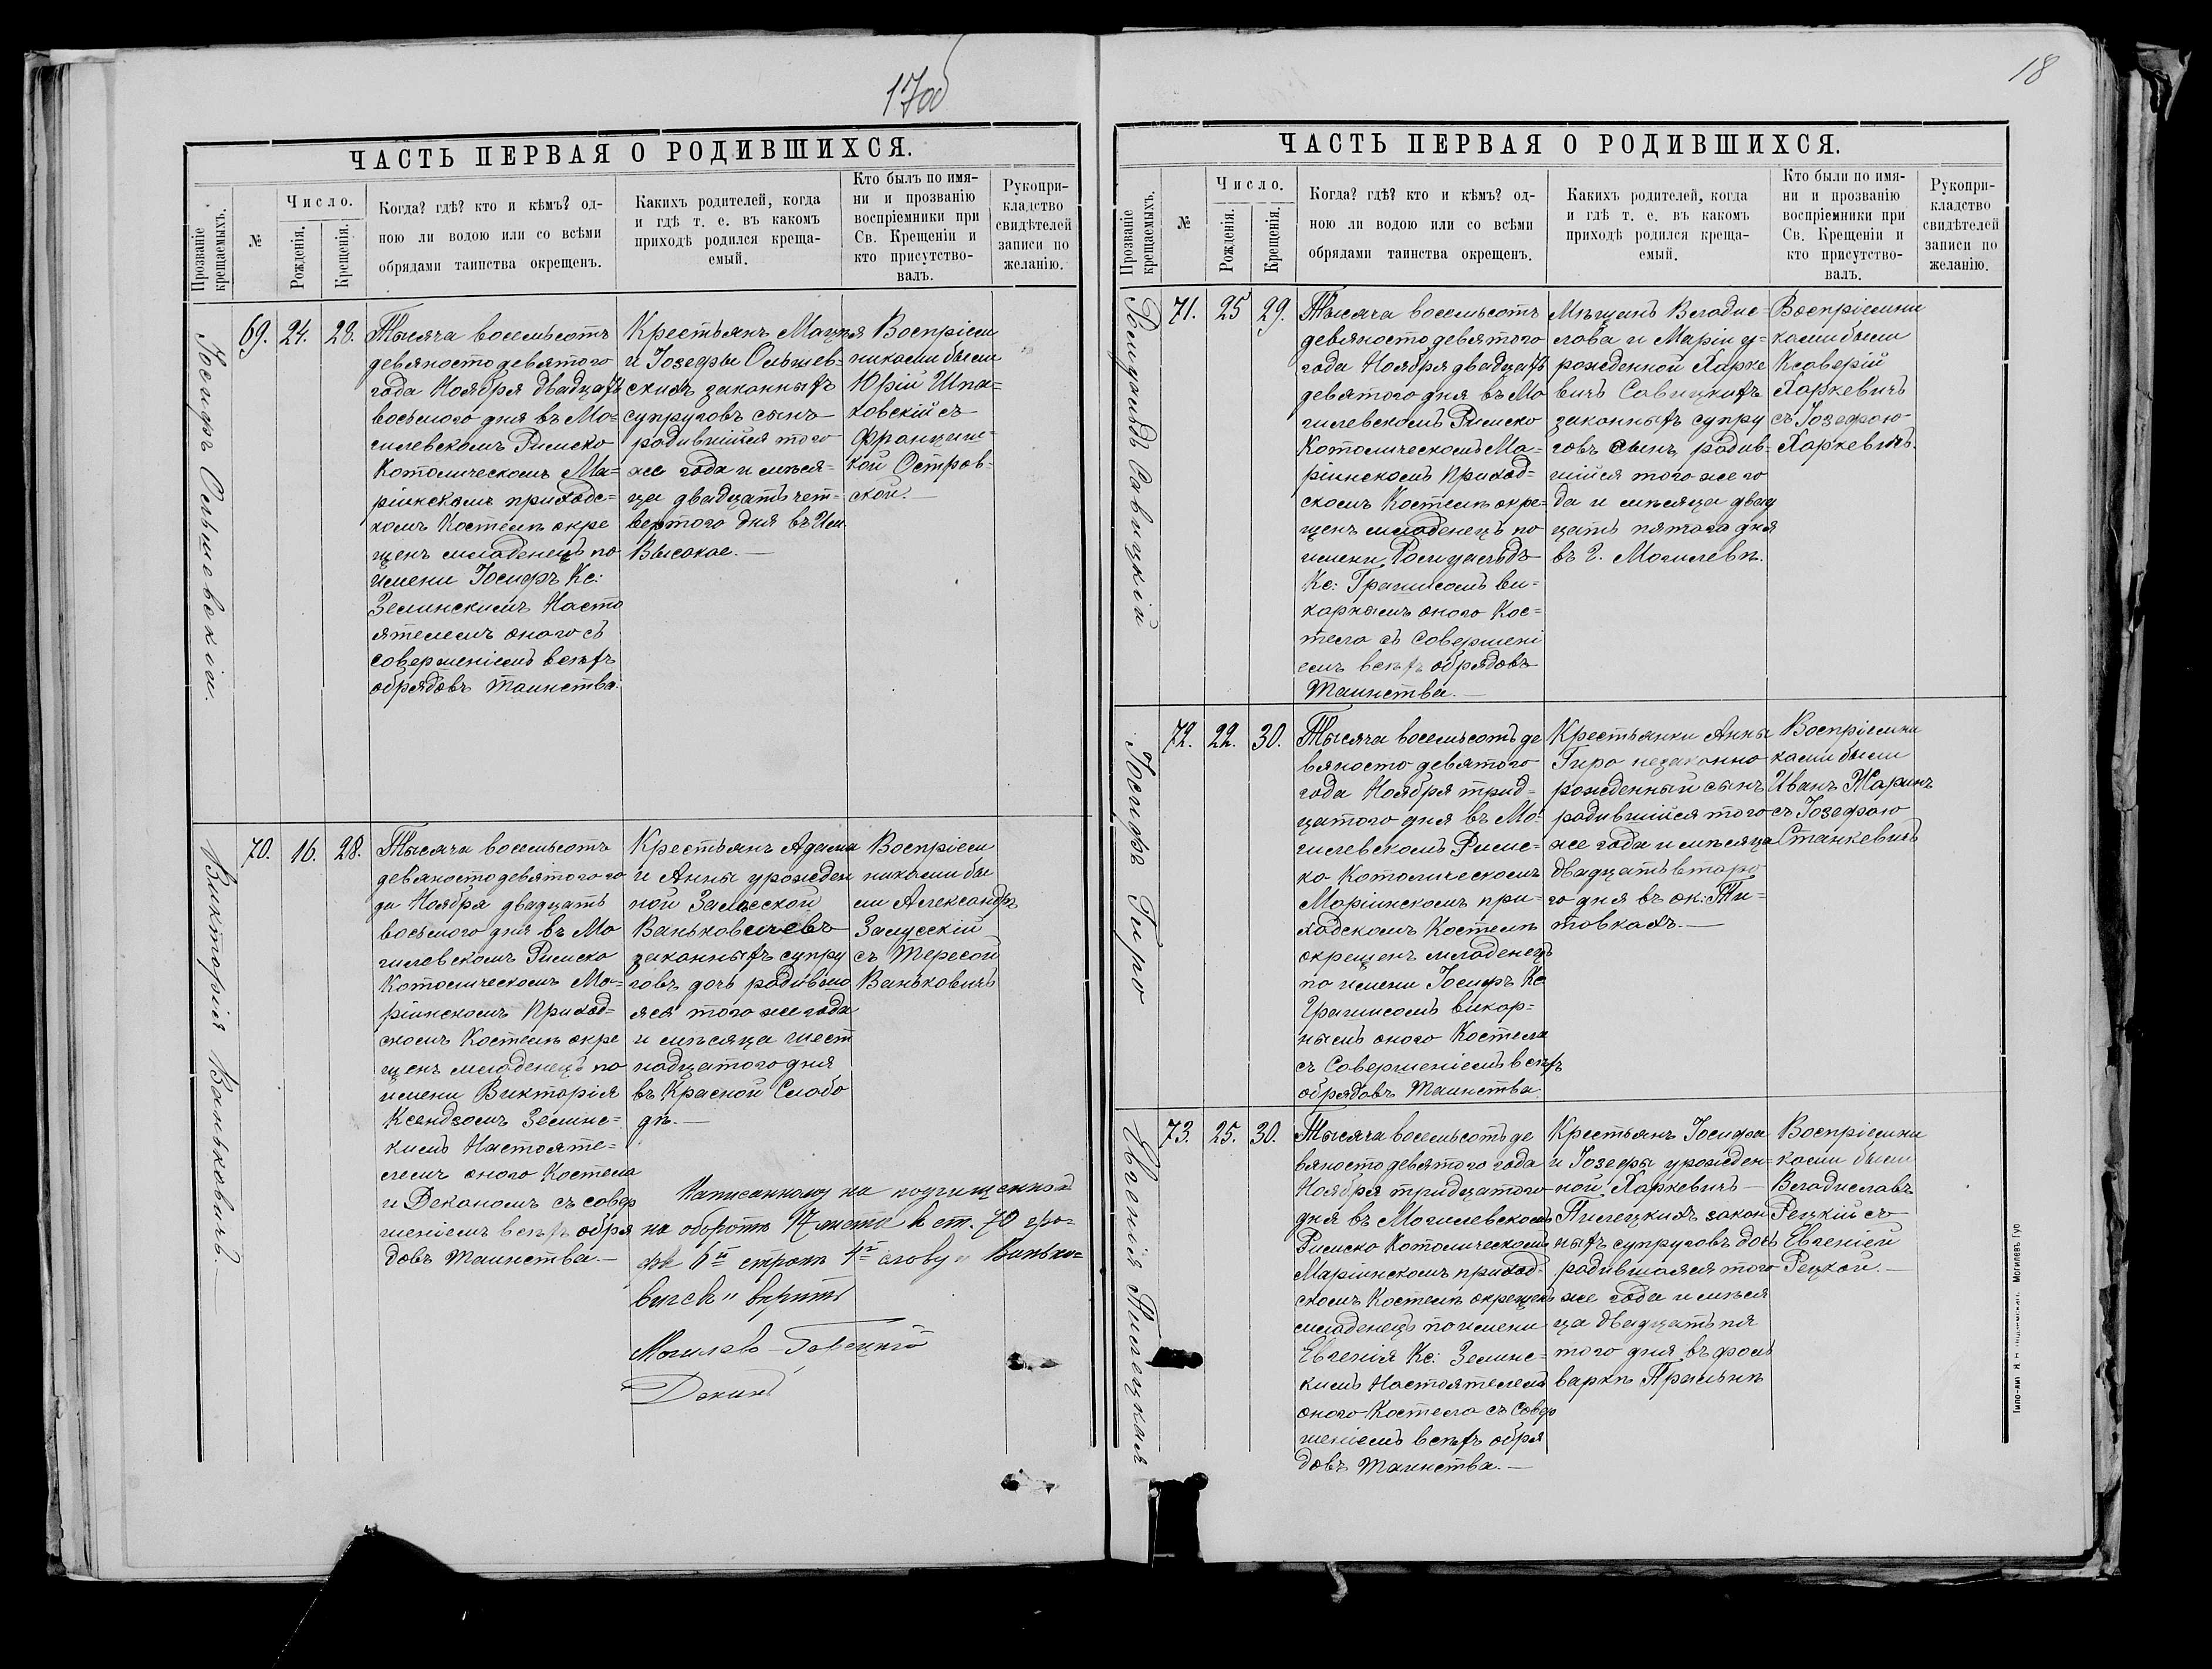 17об
ЧАСТЬ ПЕРВАЯ О РОДИВШИХСЯ.
Прозваніе крещаемыхъ.
№
Число.
Рожденія.
Крещенія.
Когда? гдѣ? кто и кѣмъ? од-
ною ли водою или со всѣми
обрядами таинства окрещенъ.
Какихъ родителей, когда
и гдѣ т. е. въ какомъ
приходѣ родился креща-
емый.
Кто былъ по имя-
ни и прозванію
воспріемники при
Св. Крещеніи и
кто присутство-
валъ.
Рукопри-
кладство
свидѣтелей
записи по
желанію.
Іосифъ Ольшевскій.
69. 24. 28.
Тысяча восемьсотъ
девяностодевятого
года Ноября двадцать
восьмого дня въ Мо-
гилевскомъ Римско
Католическомъ Ма-
ріинскомъ приходс-
комъ Костелѣ окре
щенъ младенецъ по
имени Іосифъ Кс:
Зелинскимъ Насто
ятелемъ оного съ
совершеніемъ всѣхъ
обрядовъ таинства.
Крестьянъ Мацѣя
и Іозефы Ольшев-
скихъ законныхъ
супруговъ сынъ
родившійся того
же года и мѣся-
ца двадцать чет-
вертого дня въ Им.
Высокое.
Воспріем
никами были
Юрій Шпа-
ковскій съ
Францишк-
кой Остров-
ской.
Викторія Ваньковичъ.
70. 16. 28.
Тысяча восемьсотъ
девяностодевятого го
да Ноября двадцать
восьмого дня въ Мо
гилевскомъ Римско
Католическомъ Ма-
ріинскомъ Приход-
скомъ Костелѣ окре
щенъ младенецъ по
имени Викторія
Ксендзомъ Зелинс-
кимъ Настояте-
лемъ оного Костела
и Деканомъ съ совер
шеніемъ всѣхъ обря
довъ таинства.
Крестьянъ Адама
и Анны урожден
ной Залѣсской
Ваньковичевъ
законныхъ супру
говъ дочь родивша
яся того же года
и мѣсяца шест
надцатого дня
въ Красной Слобо
дѣ.
Воспріем
никами бы
ли Александръ
Залусскій
съ Тересой
Ваньковичъ
Написанному на подчищенной
на оборотѣ 17 листа въ ст. 70 гра-
фѣ 6й строкѣ 4й слову "Ванько-
вичевъ" вѣрить
Могилев-
Деканъ
18
ЧАСТЬ ПЕРВАЯ О РОДИВШИХСЯ.
Прозваніе крещаемыхъ.
№
Число.
Рожденія.
Крещенія.
Когда? гдѣ? кто и кѣмъ? од-
ною ли водою или со всѣми
обрядами таинства окрещенъ.
Какихъ родителей, когда
и гдѣ т. е. въ какомъ
приходѣ родился креща-
емый.
Кто были по имя-
ни и прозванію
воспріемники при
Св. Крещеніи и
кто присутство-
валъ.
Рукопри-
кладство
свидѣтелей
записи по
желанію.
Ромуальдъ Савицкій
71. 25 29.
Тысяча восемьсотъ
девяностодевятого
года Ноября двадцать
девятого дня въ Мо
гилевскомъ Римско
Католическомъ Ма-
ріинскомъ Приход-
скомъ Костелѣ окре-
щенъ младенецъ по
имени Ромуальдъ
Кс: Гралисомъ ви-
карнымъ оного Кос-
тела съ Совершені
емъ всѣхъ обрядовъ
Таинства.
Мѣщанъ Владис-
лава и Маріи у-
рожденной Харке
вичъ Савицкихъ
законныхъ супру
говъ сынъ родив-
шійся того же го
да и мѣсяца двад
цать пятаго дня
въ г. Могилевѣ.
Воспріемни
ками были
Ксаверій
Харкевичъ
съ Іозефою
Харкевичъ.
Іосифъ Гиро
72. 22. 30.
Тысяча восемьсотъ де
вяносто девятого
года Ноября трид-
цатого дня въ Мо-
гилевскомъ Римс-
ко Католическомъ
Маріинскомъ при-
ходскомъ Костелѣ
окрещенъ младенецъ
по имени Іосифъ Кс
Гралисомъ викар-
нымъ оного Костела
съ Совершеніемъ всѣхъ
обрядовъ Таинства.
Крестьянки Анны
Гиро незаконно
рожденный сынъ
родившійся того
же года и мѣсяца
двадцать второ
го дня въ ок: Ти-
товкахъ.
Воспріемни
ками были
Иванъ Жаринъ
съ Іозефою
Станкевичъ
Евгенія Пилецкая
73. 25. 30.
Тысяча восемьсотъ де
вяносто девятого года
Ноября тридцатого
дня въ Могилевскомъ
Римско Католическомъ
Маріинскомъ приход-
скомъ Костелѣ окрещенъ
младенецъ по имени
Евгенія Кс: Зелинс-
кимъ Настоятелемъ
оного Костела съ Совер
шеніемъ всѣхъ обря
довъ Таинства.
Крестьянъ Іосифа
и Іозефы урожден-
ной Харкевичъ
Пилецкихъ закон
ныхъ супруговъ дочь
родившаяся того
же года и мѣся
ца двадцать пя
того дня въ фоль
варкѣ
Воспріемни
ками были
Владиславъ
Рецкій съ
Евгеніей
Рецкой.